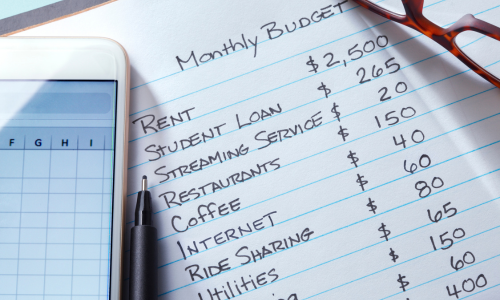 F G H I
Monthly Budget
Rent $2,500
Student Loan $ 265
Streaming Service $ 20
Restaurants $ 150
Coffee $ 40
Internet $ 60
Ride Sharing $ 80
Utilities $ 65
$ 150
$ 60
400